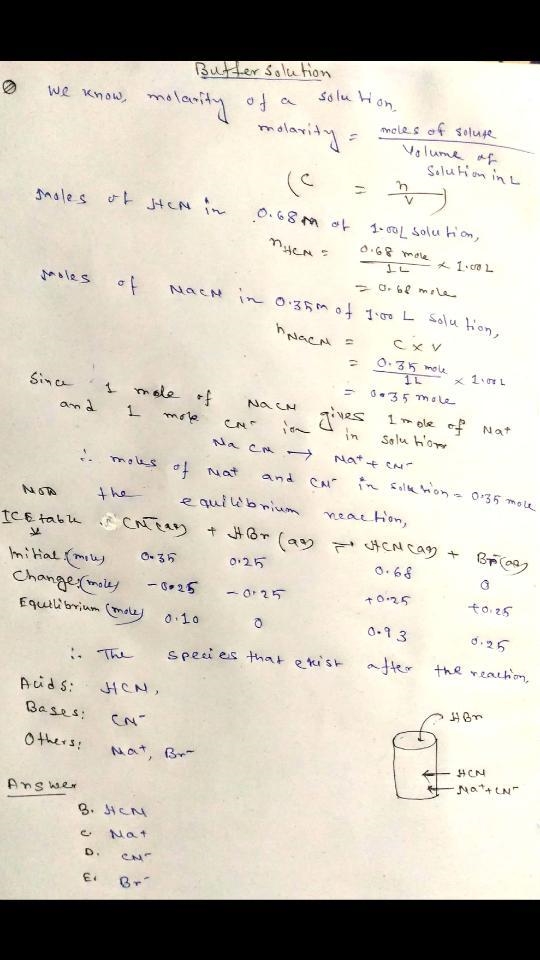 Buffer solution
We know, molarity of a solution,
molarity = moles of solute
Volume of
Solution in L
(C = n/V)
Moles of HCN in 0.68M of 1.00L solution,
nHCN = 0.68 mole/1L × 1.00L
= 0.68 mole
Moles of NaCN in 0.35M of 1.00 L solution,
nNaCN = C × V
= 0.35 mole/1L × 1.00L
= 0.035 mole
Since 1 mole of NaCN gives 1 mole of Na+
and 1 mole CN- ion in solution
NaCN → Na+ + CN-
∴ moles of Na+ and CN- in solution = 0.35 mole
Now the equilibrium reaction,
ICE table CN-(aq) + HBr (aq) ⇌ HCN(aq) + Br-(aq)
Initial:(mole) 0.35 0.25 0.68 0
Change:(mole) -0.25 -0.25 +0.25 +0.25
Equilibrium (mole) 0.10 0 0.93 0.25
∴ The species that exist after the reaction,
Acids: HCN,
Bases: CN-
Others: Na+, Br-
HBr
HCN
Na+ + CN-
Answer
B. HCN
C. Na+
D. CN-
E. Br-